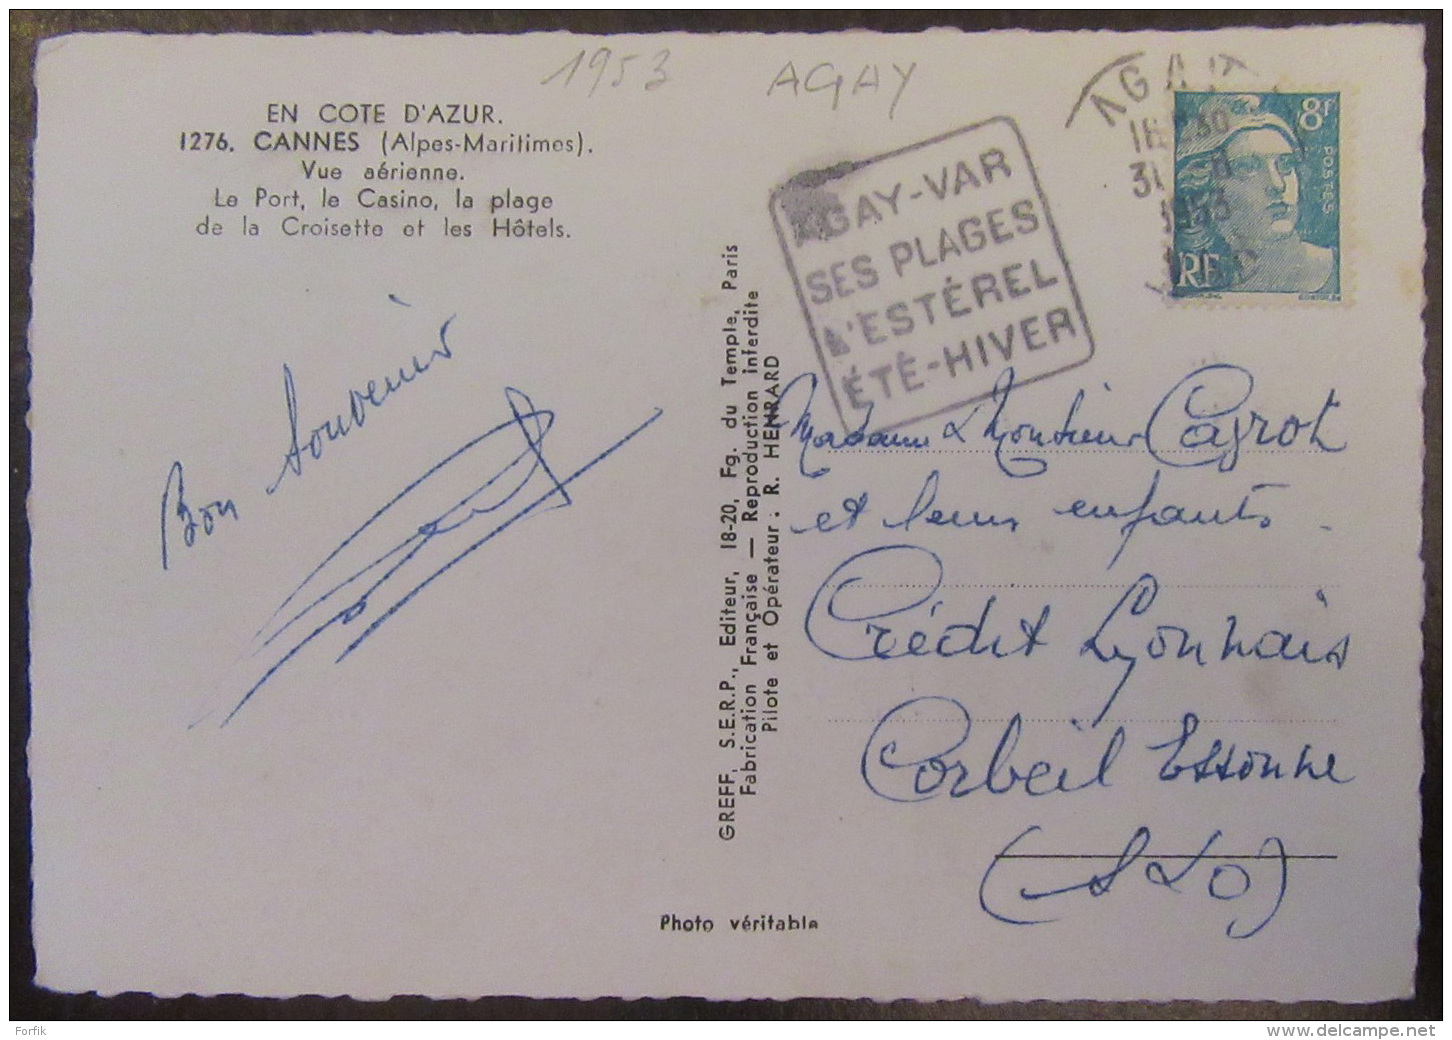 1953 AGAY
EN COTE D'AZUR.
1276. CANNES (Alpes-Maritimes).
Vue aérienne.
Le Port, le Casino, la plage
de la Croisette et les Hôtels.
Bon Souvenir
GREFF, S.E.R.P., Editeur, 18-20, Fg. du Temple, Paris
Fabrication Française — Reproduction interdite
Pilote et Opérateur : R. HENRARD
Photo véritable
AGAY-VAR
SES PLAGES
L'ESTÉREL
ÉTÉ-HIVER
AGAY
30
31
1953
8f
POSTES
RF
Madame & Monsieur Cayrot
et leurs enfants.
Crédit Lyonnais
Corbeil Essonne
(S&O)
Forfik
www.delcampe.net